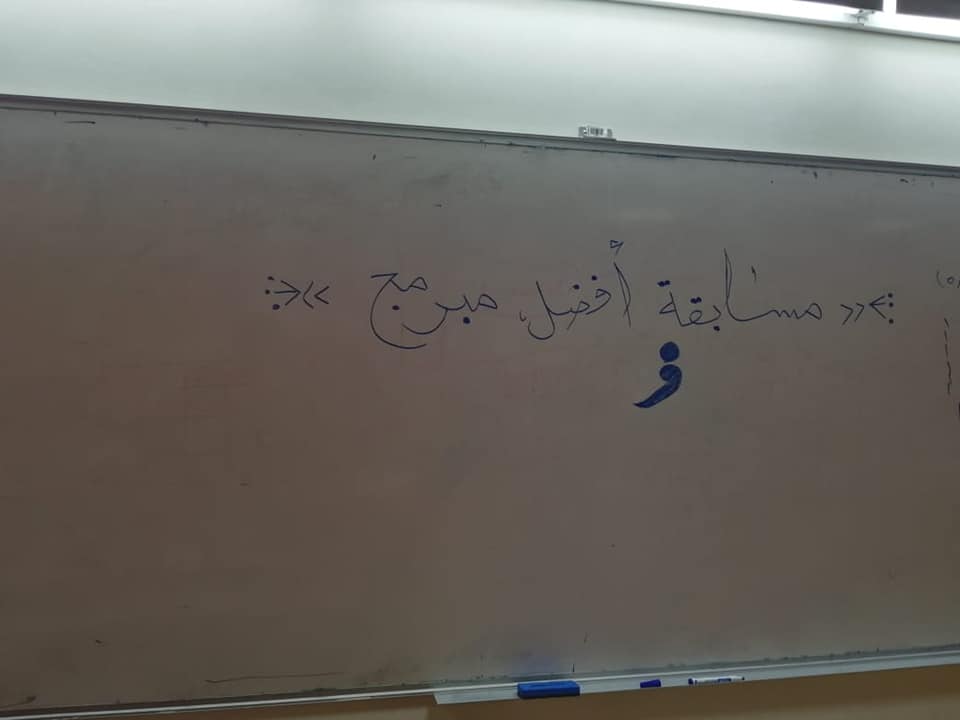 :>>> مسابقة أفضل مبرمج <<<:
و